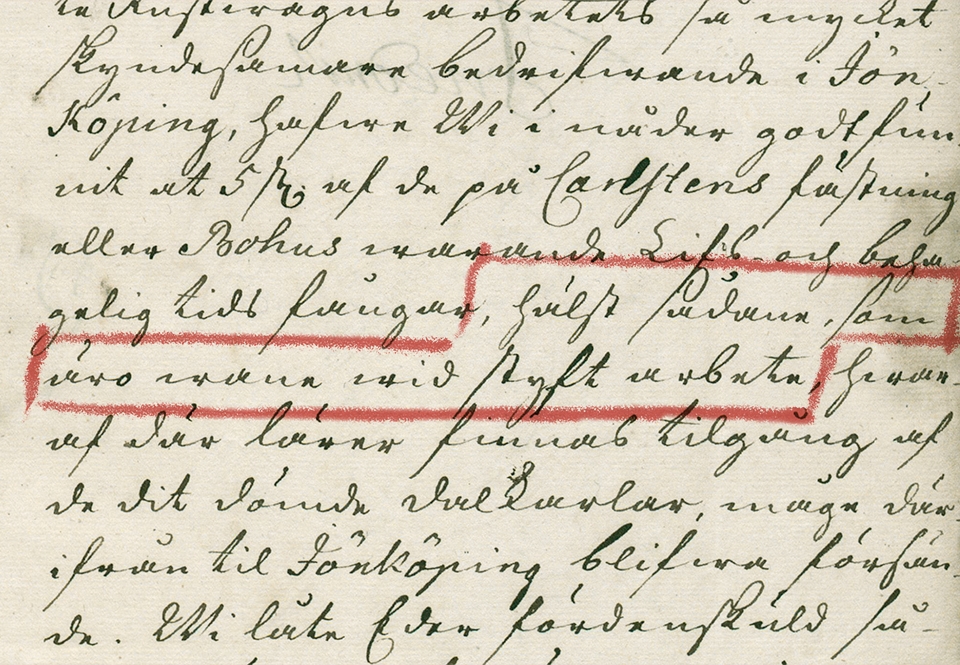 arbetets så mycket
skyndesamare bedrifwande i Jön-
köping, hafwe Wi i nåder godt fun-
nit at 5 st. af de på Carlstens fästning
eller Bohus warande Lifs- och beha-
gelig tids fångar, hälst sådane, som
äro wane wid styft arbete, hwar-
af där lärer finnas tilgång af
de dit dömde Dalkarlar, måge där-
ifrån til Jönköping blifwa försän-
de. Wi låte Eder fördenskuld så-